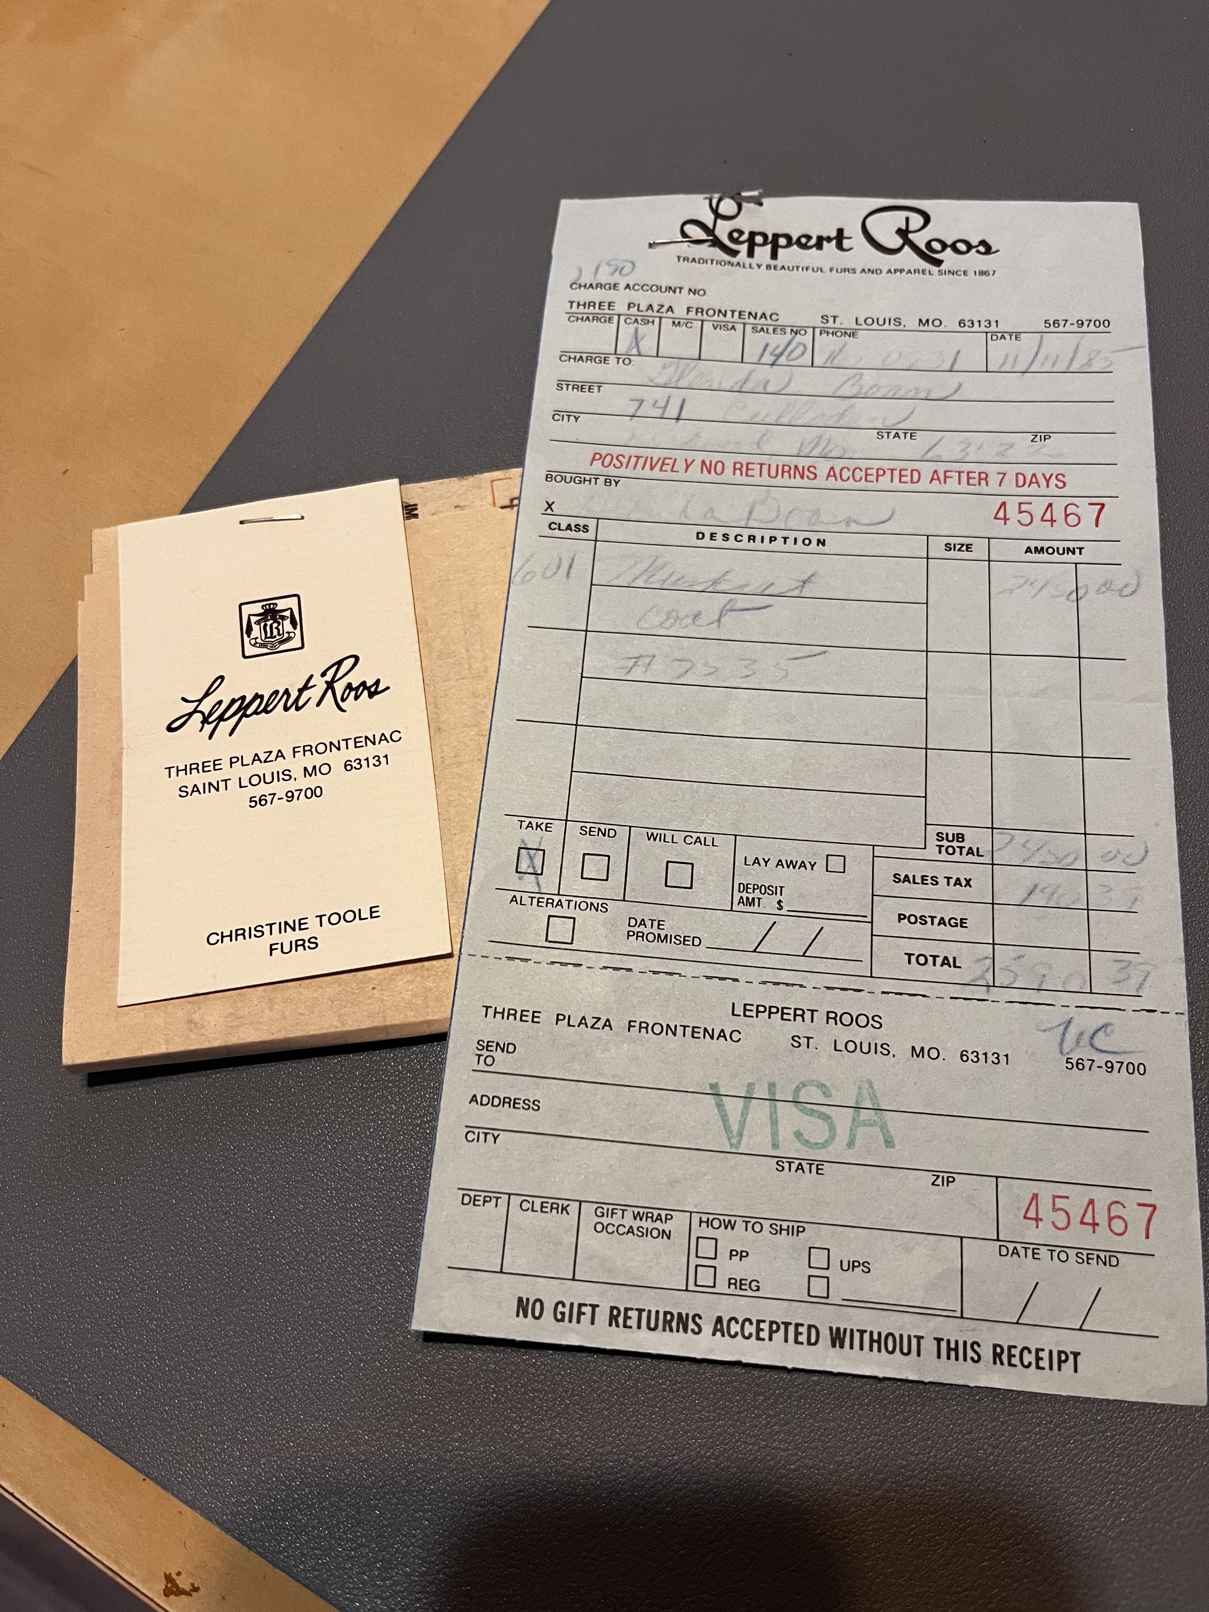 Leppert Roos
THREE PLAZA FRONTENAC
SAINT LOUIS, MO 63131
567-9700
CHRISTINE TOOLE
FURS
Leppert Roos
TRADITIONALLY BEAUTIFUL FURS AND APPAREL SINCE 1867
CHARGE ACCOUNT NO
THREE PLAZA FRONTENAC ST. LOUIS, MO. 63131 567-9700
CHARGE CASH M/C VISA SALES NO PHONE DATE
X 140 11/11/85
CHARGE TO Boan
STREET 741
CITY STATE ZIP
Mo 63122
POSITIVELY NO RETURNS ACCEPTED AFTER 7 DAYS
BOUGHT BY
X Boan 45467
CLASS DESCRIPTION SIZE AMOUNT
601 Muskrat 2450 00
coat
# 7235
TAKE SEND WILL CALL LAY AWAY SUB TOTAL 2450 00
X
DEPOSIT AMT. $ SALES TAX 140 37
ALTERATIONS DATE PROMISED / / POSTAGE
TOTAL 2590 37
LEPPERT ROOS
THREE PLAZA FRONTENAC ST. LOUIS, MO. 63131 567-9700
SEND TO
VISA
ADDRESS
CITY STATE ZIP
45467
DEPT CLERK GIFT WRAP OCCASION HOW TO SHIP DATE TO SEND
PP UPS
REG / /
NO GIFT RETURNS ACCEPTED WITHOUT THIS RECEIPT